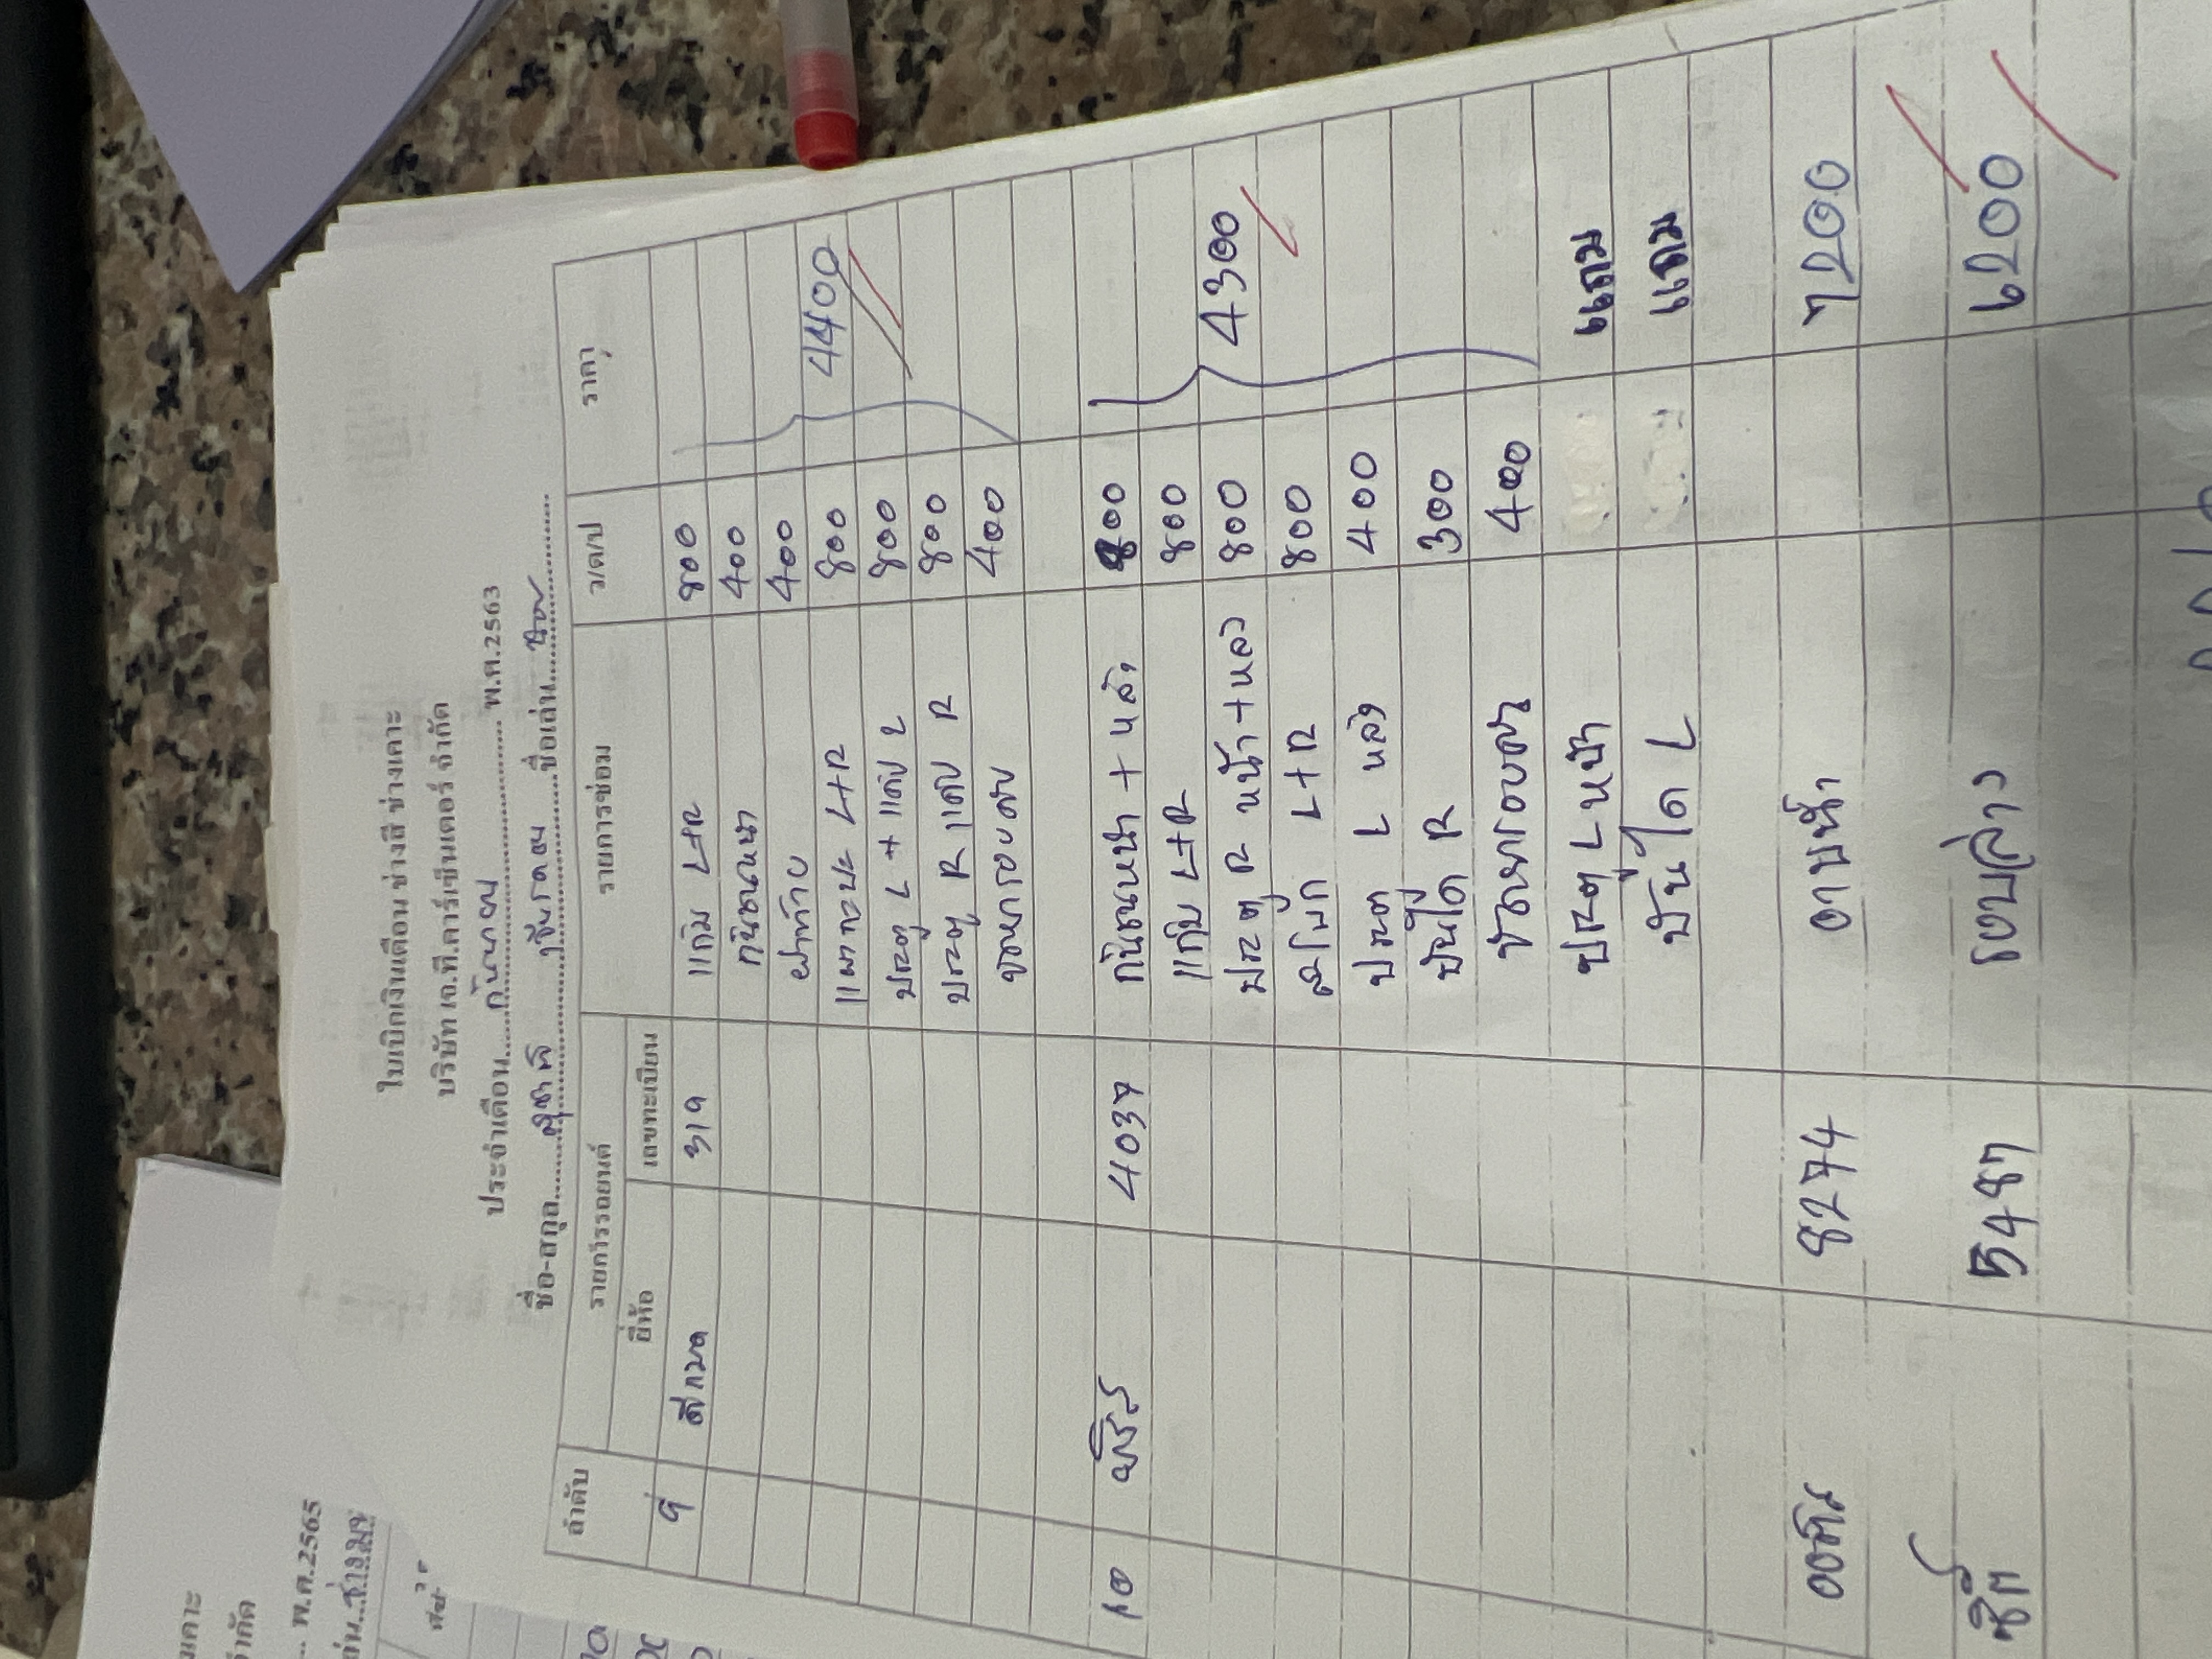 ใบเบิกเงินเดือน ช่างสี ช่างเคาะ
บริษัท เจ.ที.คาร์เซ็นเตอร์ จำกัด
ประจำเดือน....กันยายน.... พ.ศ.2563
ชื่อ-สกุล.... ....ชื่อเล่น....
ลำดับ รายการรถยนต์ รายการซ่อม ว/ด/ป ราคา
ยี่ห้อ เลขทะเบียน
9 319 แก้ม L+R 800
กันชนหน้า 400
ฝาท้าย 400
แผงกะบะ L+R 800 4400
ประตู L + แค๊ป L 800
ประตู R แค๊ป R 800
ขัดยกรอบคัน 400
10 4037 กันชนหน้า + หลัง 800
แก้ม L+R 800
ประตู R หน้า+หลัง 800 4300
สะโพก L+R 800
ประตู L หลัง 400
บันได R 300
400
ประตู L หน้า แถม
บันได L แถม
8274 อาบน้ำ 7200
ซิตี้ 5487 รอบล่าง 6200
พ.ศ.2565